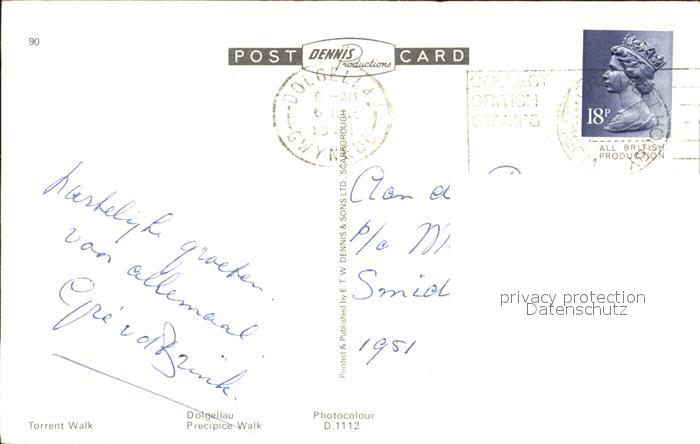 90
POST DENNIS Productions CARD
DOLGELLAU
GWYNEDD
COLLECT
BRITISH
STAMPS
18P
ALL BRITISH
PRODUCTION
Hartelijke groeten
van allemaal
Gré vd Brink.
Printed & Published by E.T.W. DENNIS & SONS LTD., SCARBOROUGH
Aan d
P/a M
Smid
1951
privacy protection
Datenschutz
Torrent Walk
Dolgellau
Precipice Walk
Photocolour
D.1112